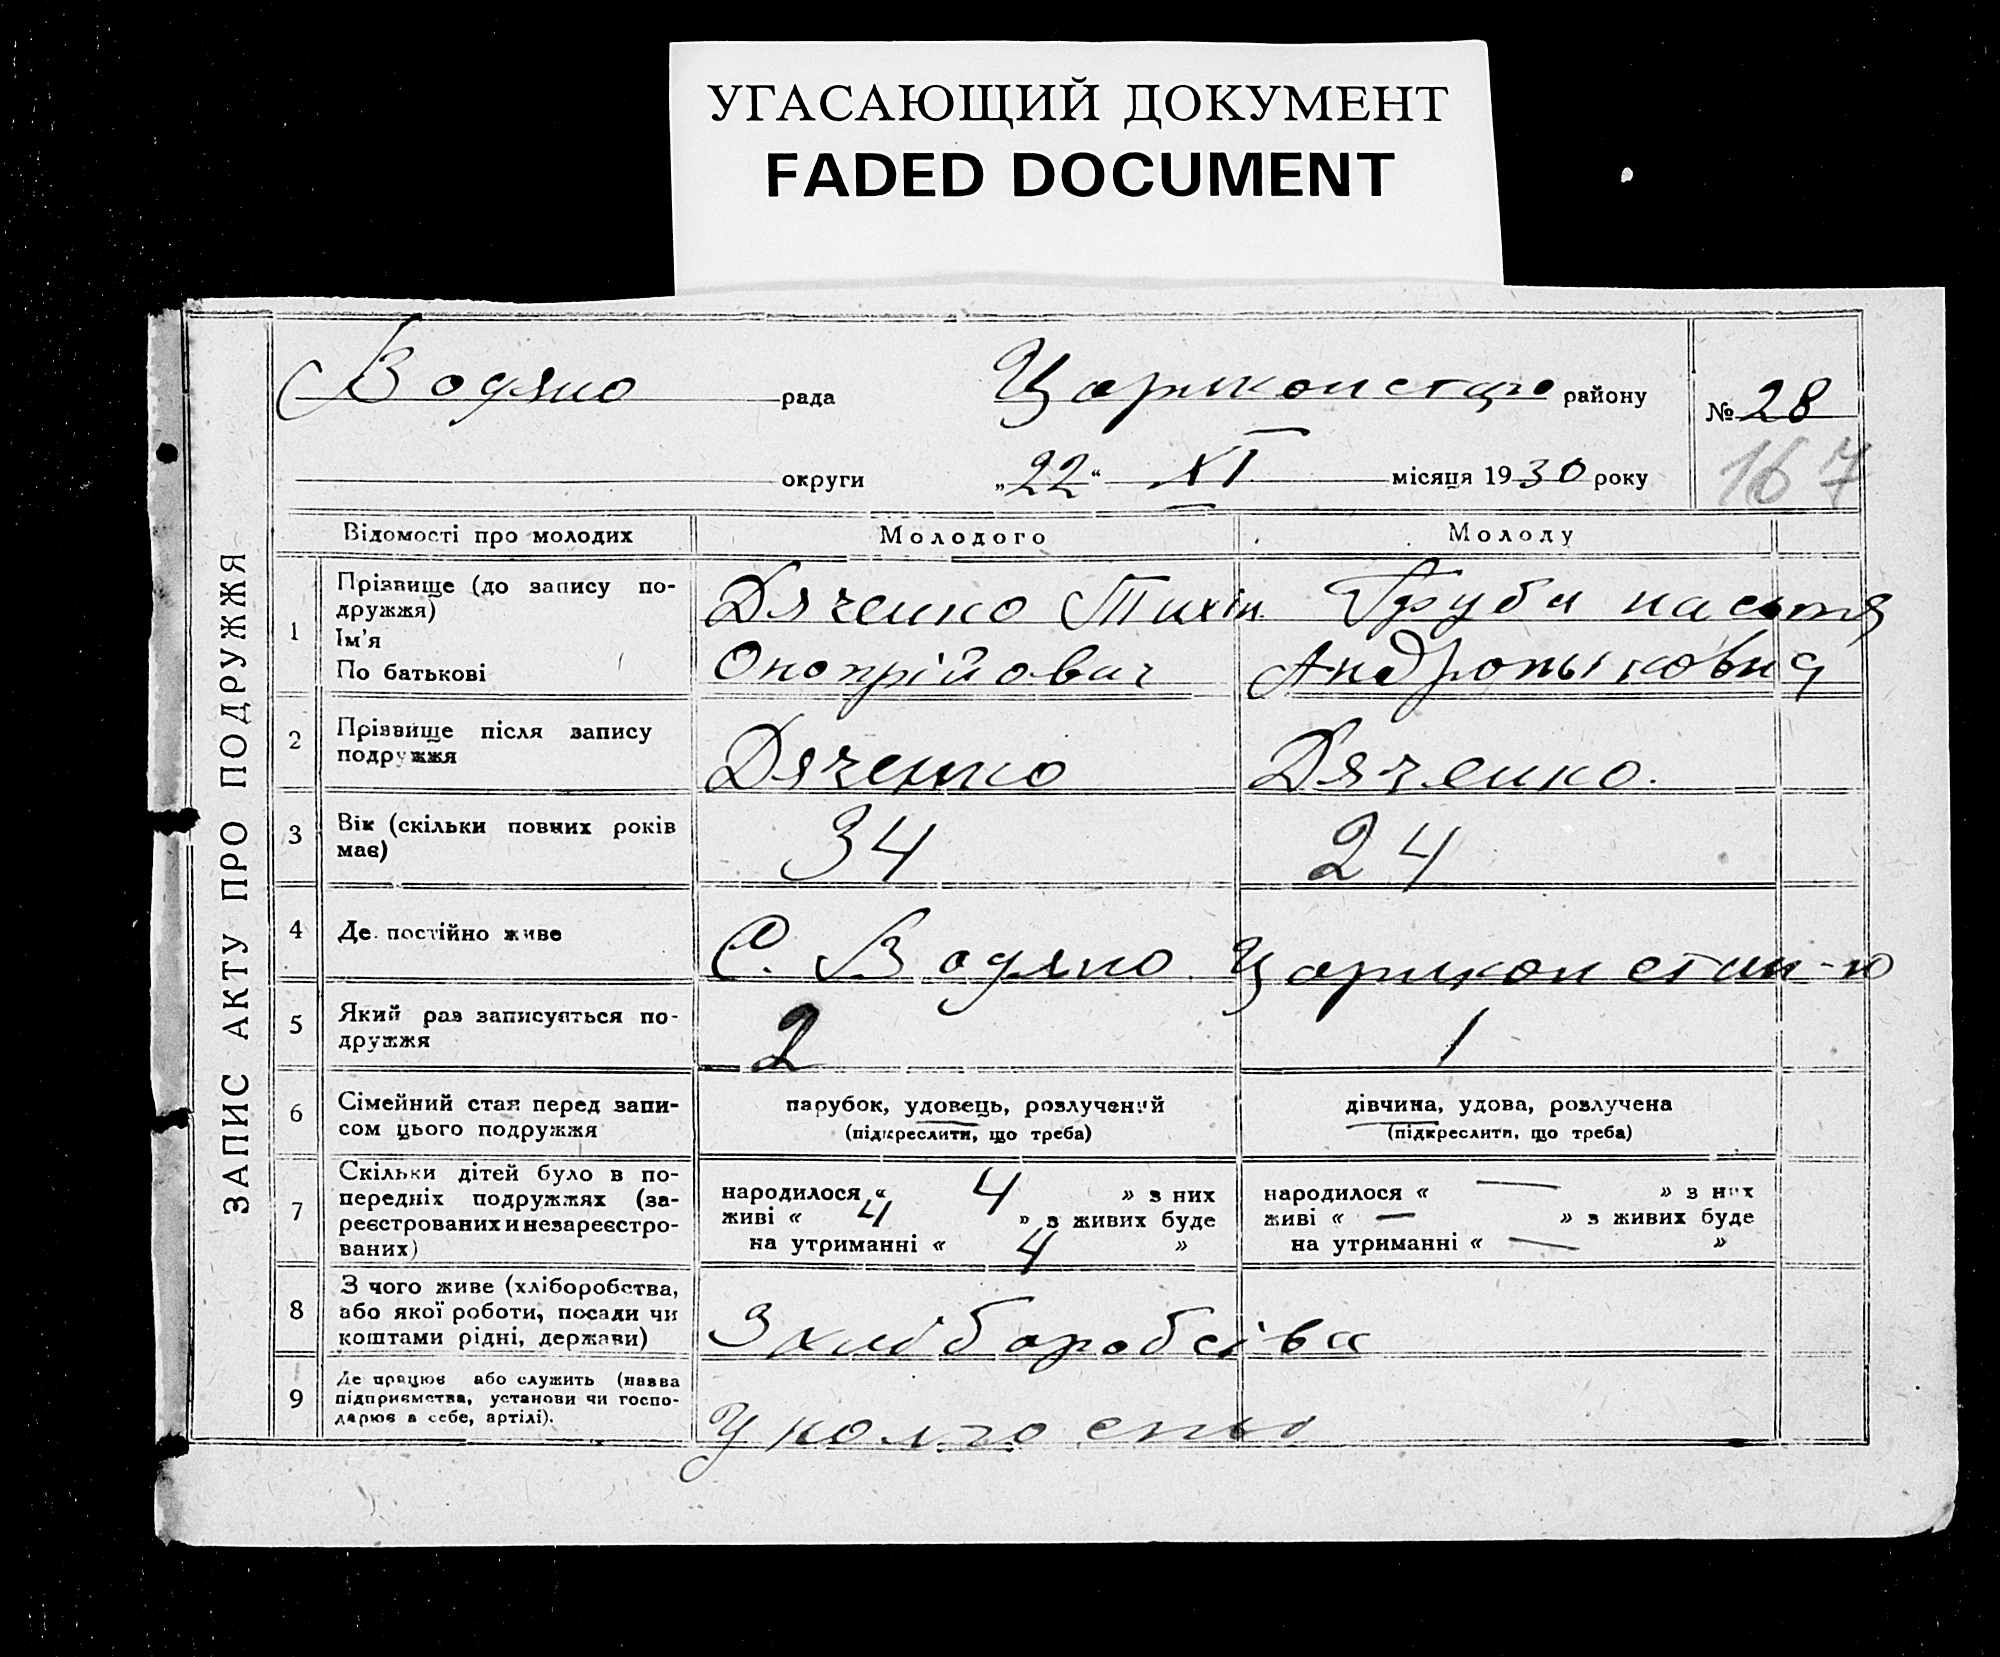 УГАСАЮЩИЙ ДОКУМЕНТ
FADED DOCUMENT
ЗАПИС АКТУ ПРО ПОДРУЖЖЯ
Водяно рада району № 28
округи „22“ XI місяця 1930 року 167
Відомості про молодих Молодого Молоду
1 Прізвище (до запису по-
дружжя)
Ім'я
По батькові
Дяченко Тихін
Онопрійович
Груби настя
2 Прізвище після запису
подружжя
Дяченко Дяченко.
3 Вік (скільки повних років
має)
34 24
4 Де постійно живе С. Водяно
5 Який раз записується по-
дружжя
2 1
6 Сімейний стан перед запи-
сом цього подружжя
парубок, удовець, розлучений
(підкреслити, що треба)
дівчина, удова, розлучена
(підкреслити, що треба)
7 Скільки дітей було в по-
передніх подружжях (за-
реєстрованих и незареєстро-
ваних)
народилося « 4 » з них
живі « 4 » з живих буде
на утриманні « 4 »
народилося « — » з них
живі « — » з живих буде
на утриманні « — »
8 З чого живе (хліборобства,
або якої роботи, посади чи
коштами рідні, держави)
З хліборобсва
9 Де працює або служить (назва
підприємства, установи чи госпо-
дарює в себе, артілі).
У